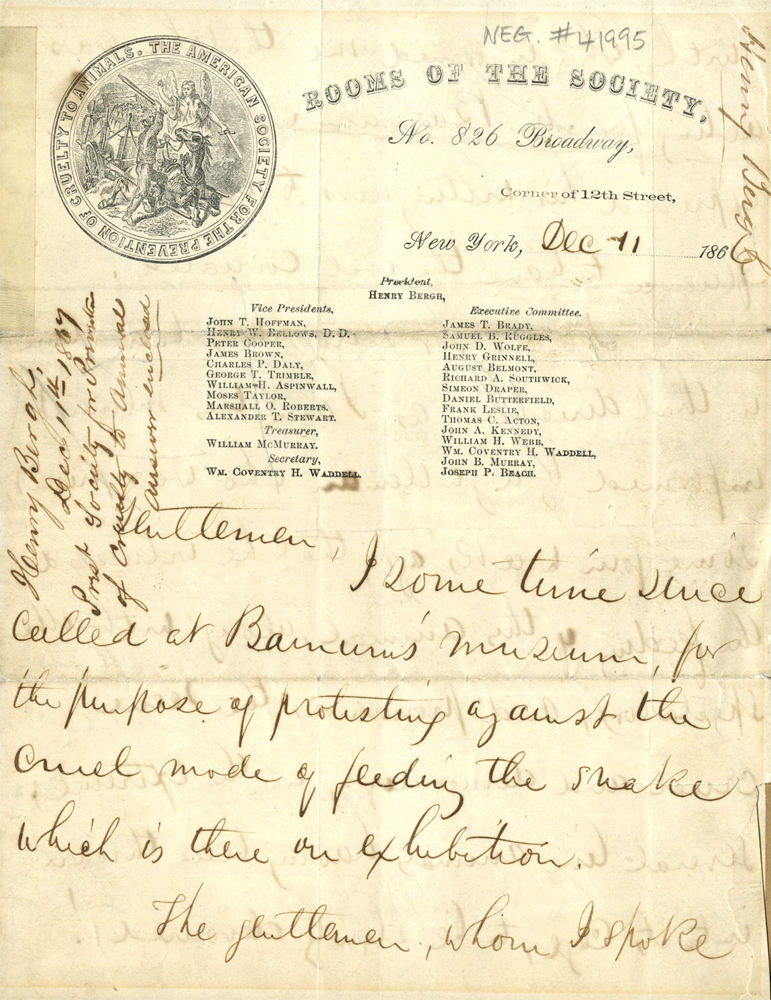 NEG. #41995
THE AMERICAN SOCIETY FOR THE PREVENTION OF CRUELTY TO ANIMALS.
ROOMS OF THE SOCIETY,
No. 826 Broadway,
Corner of 12th Street,
New York, Dec 11 1866
Henry Bergh
President,
HENRY BERGH,
Vice Presidents,
JOHN T. HOFFMAN,
HENRY W. BELLOWS, D. D.
PETER COOPER,
JAMES BROWN,
CHARLES P. DALY,
GEORGE T. TRIMBLE,
WILLIAM H. ASPINWALL,
MOSES TAYLOR,
MARSHALL O. ROBERTS.
ALEXANDER T. STEWART.
Treasurer,
WILLIAM MCMURRAY.
Secretary,
WM. COVENTRY H. WADDELL.
Executive Committee.
JAMES T. BRADY.
SAMUEL B. RUGGLES,
JOHN D. WOLFE,
HENRY GRINNELL,
AUGUST BELMONT,
RICHARD A. SOUTHWICK,
SIMEON DRAPER,
DANIEL BUTTERFIELD,
FRANK LESLIE,
THOMAS C. ACTON,
JOHN A. KENNEDY,
WILLIAM H. WEBB,
WM. COVENTRY H. WADDELL,
JOHN B. MURRAY,
JOSEPH P. BEACH.
Henry Bergh,
Dec 11th 1867
Prest Society for Prevention
of Cruelty to Animals
Answer enclosed
Gentlemen,
I some time since
called at Barnum's museum, for
the purpose of protesting against the
cruel mode of feeding the snake
which is there on exhibition.
The gentlemen, whom I spoke